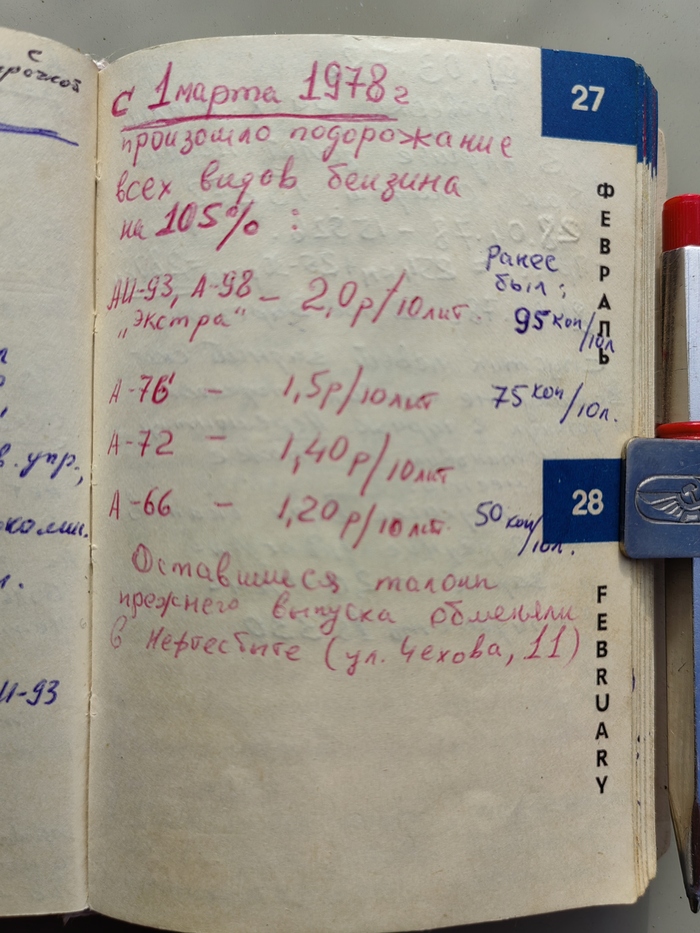 с
рочкой
в. упр.,
И-93
27
ФЕВРАЛЬ
с 1 марта 1978 г
произошло подорожание
всех видов бензина
на 105% :
Ранее
был:
АИ-93, А-98 – 2,0 р/10 лит. 95 коп/10л
"Экстра"
А-76 – 1,5 р/10 лит 75 коп/10л.
А-72 – 1,40 р/10 лит
А-66 – 1,20 р/10 лит. 50 коп/10л.
28
FEBRUARY
Оставшиеся талоны
прежнего выпуска обменяли
в Нефтесбыте (ул. Чехова, 11)